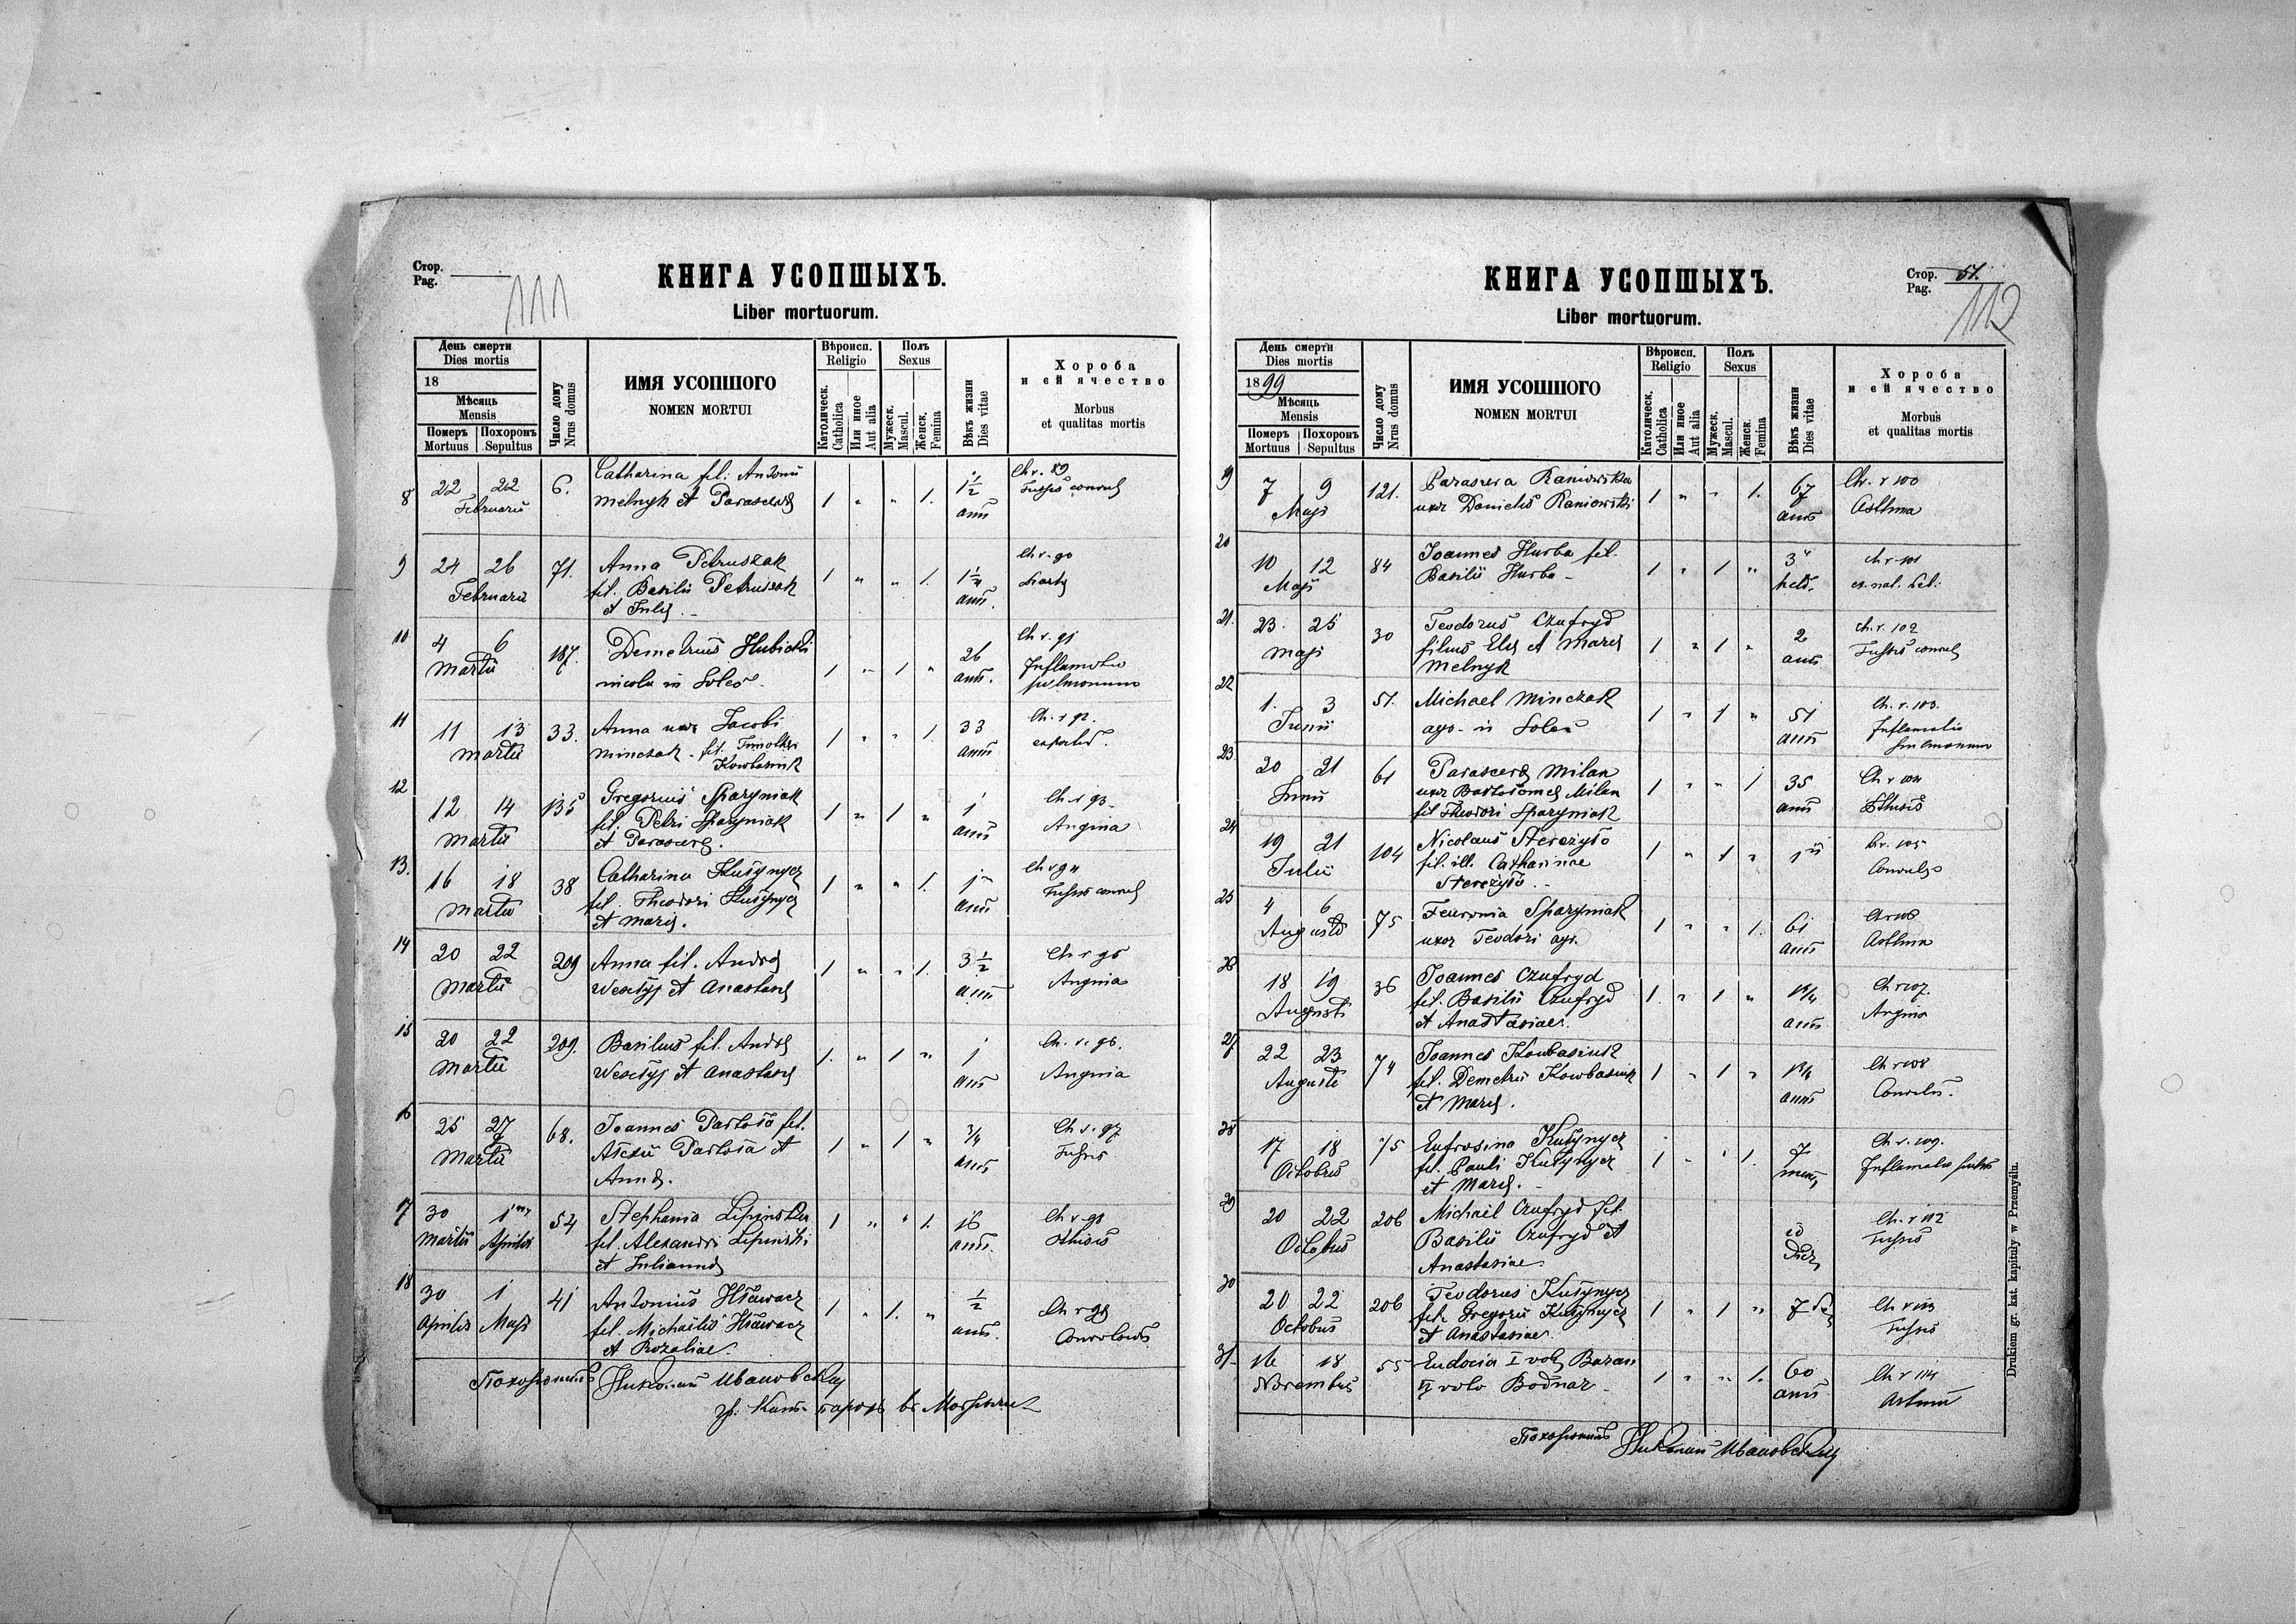 Стор.
Pag.
111
КНИГА УСОПШЫХЪ.
Liber mortuorum.
День смерти
Dies mortis
18
Мѣсяць
Mensis
Померъ Похоронъ
Mortuus Sepultus
Число дому
Nrus domus
ИМЯ УСОПШОГО
NOMEN MORTUI
Вѣроисп.
Religio
Католическ.
Catholica
Или иное
Aut alia
Полъ
Sexus
Мужеск.
Mascul.
Женск.
Femina
Вѣкъ жизни
Dies vitae
Хороба
и ей ячество
Morbus
et qualitas mortis
8 22 22 Februarii 6. Catharina fil. Antonii
Melnyk et Parascevæ 1 " " 1. 1½ anni Ch v. 89
Tussis convul
9 24 26 Februarii 71. Anna Petruszak
fil. Basilii Petruszak
et Juliæ. 1 " " 1. anni. Ch v. 90
10 4 6 Martii 187. Demetrius Hubicki
incola in Solec 1 " 1 " 26 anni. Ch v. 91
Inflamatio
pulmonum
11 11 13 Martii 33. Anna uxor Jacobi
Minczak - fil. Timothei
Kowbasiuk 1 " " 1. 33 anni Ch. v 92.
12 12 14 Martii 135 Gregorius Sparyniak
fil. Petri Sparyniak
et Parascevæ. 1 " 1 " 1 anni Ch v 93.
Angina
13. 16 18 Martii 38 Catharina Kuśynycz
fil. Theodori Kuśynycz
et Mariæ. 1 " " 1. anni Ch v 94
Tussis convul
14 20 22 Martii 209 Anna fil. Andreæ
Wesełyj et Anastasiæ 1 " " 1. 3½ anni Ch v 95
Angina
15 20 22 Martii 209. Basilius fil. Andreæ
Wesełyj et Anastasiæ 1. " 1 " 1 anni Ch. v. 96.
Angina
16 25 27 Martii 68. Joannes Partoła fil.
Alexii Partoła et
Annæ. 1 " 1 " ¾ anni Ch v. 97
Tussis
17 30 Martii 1 Aprilis 54 Stephania Lipinska
fil. Alexandri Lipinski
et Juliannæ 1 " " 1. 16 anni. Ch v. 98
Phtisis
18 30 Aprilis 1 Maji 41 Antonius Hławacz
fil. Michaelis Hławacz
et Rozaliae. 1 " 1. " ½ anni. Ch v 99
Похоронилъ Николай Ивановскій
гр. кат. парохъ
Стор. 51.
Pag.
112
КНИГА УСОПШЫХЪ.
Liber mortuorum.
День смерти
Dies mortis
1899
Мѣсяць
Mensis
Померъ Похоронъ
Mortuus Sepultus
Число дому
Nrus domus
ИМЯ УСОПШОГО
NOMEN MORTUI
Вѣроисп.
Religio
Католическ.
Catholica
Или иное
Aut alia
Полъ
Sexus
Мужеск.
Mascul.
Женск.
Femina
Вѣкъ жизни
Dies vitae
Хороба
и ей ячество
Morbus
et qualitas mortis
19 7 9 Maji 121. Parasceva Raniowska
uxor Danielis Raniowski 1 " " 1. 67 anno Ch. v 100
Asthma
20 10 12 Maji 84 Joannes Hurba fil.
Basilii Hurba - 1 " 1 " 3 Ch v 101
21. 23. 25 Maji 30 Teodorus Czufryd
filius Eliæ et Mariæ
Melnyk 1 " 1 " 2 anni Ch. v. 102
Tussis convul
22 1. 3 Junii 51. Michael Minczak
agr. in Solec 1 " 1 " 51 anni Ch. v. 103.
Inflamatio
pulmonum
23. 20 21 Junii 61 Parascevæ Milan
uxor Bartolomei Milan
fil Theodori Sparyniak 1 " " 1 35 anni Ch v 104
Phtisis
24 19 21 Julii 104 Nicolaus Sterczyło
fil. ill. Catharinae
Sterczyło. - 1 " 1 " Ch v. 105
Convulsio
25 4 6 Augusti 75 Feuronia Sparyniak
uxor Teodori agr. 1 " " 1. 61 anni Ch v 106
Asthma
26 18 19 Augusti 36 Joannes Czufryd
fil. Basilii Czufryd
et Anastasiae. 1. " 1 " 1¼ anni Ch v 107.
Angina
27 22 23 Augusti 74 Joannes Kowbasiuk
fil. Demetrii Kowbasiuk
et Mariæ. 1 " 1 " anni Ch v 108
28 17 18 Octobris 75 Eufrosina Kuśynycz
fil. Pauli Kuśynycz
et Mariæ. 1 " " 1. 7 Ch v. 109.
29 20 22 Octobris 206 Michael Czufryd fil.
Basilii Czufryd et
Anastasiae. Ch. v 112
Tussis
30 20 22 Octobris 206 Teodorus Kuśynycz
fil. Gregorii Kuśynycz
et Anastasiae. 1 " 1 " 7 Ch v 113
Tussis
31. 16 18 Novembris 55 Eudocia I voto Baran
II voto Bodnar - 1 " " 1. 60 anni Ch v 114
Похоронилъ Николай Ивановскій
Drukiem gr. kat. kapituły w Przemyślu.